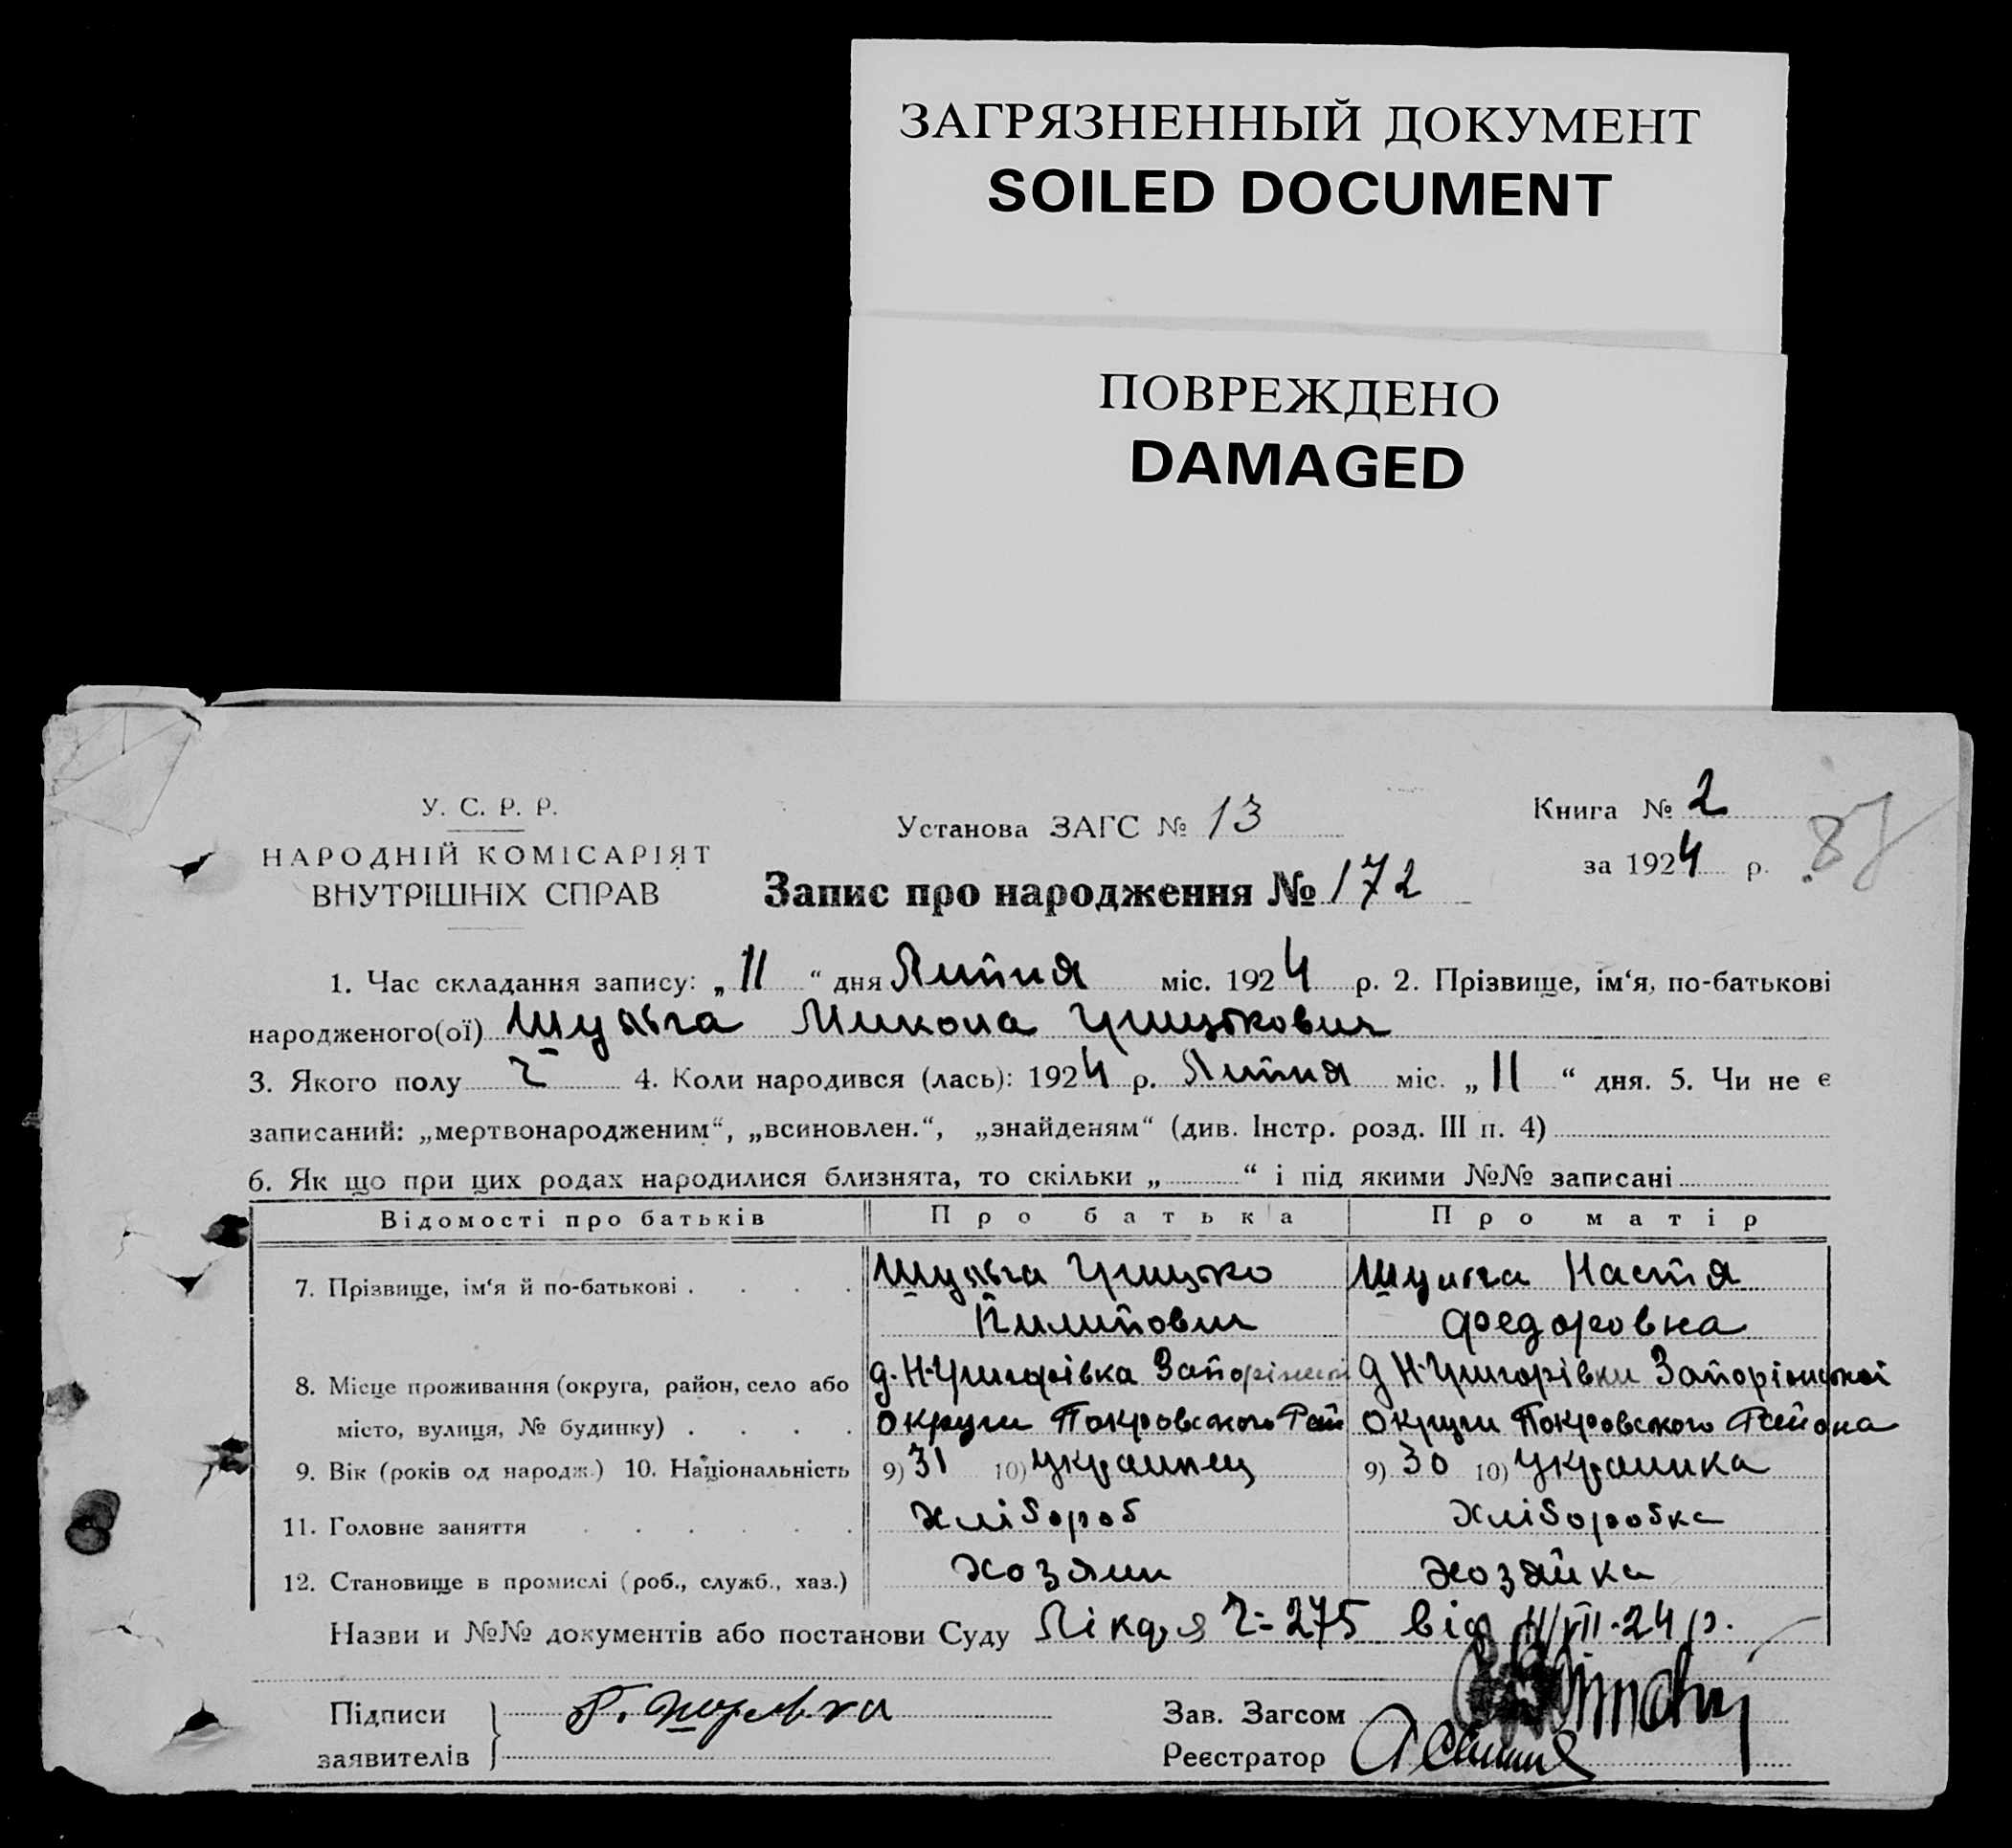 ЗАГРЯЗНЕННЫЙ ДОКУМЕНТ
SOILED DOCUMENT
ПОВРЕЖДЕНО
DAMAGED
У. С. Р. Р.
НАРОДНІЙ КОМІСАРІЯТ
ВНУТРІШНІХ СПРАВ
Установа ЗАГС № 13
Книга № 2
за 1924 р.
87
Запис про народження № 172
1. Час складання запису: „11“ дня Липня міс. 1924 р. 2. Прізвище, ім‘я, по-батькові
народженого(ої) Шульга Микола Грицькович
3. Якого полу ч 4. Коли народився (лась): 1924 р. Липня міс. „11“ дня. 5. Чи не є
записаний: „мертвонародженим“, „всиновлен.“, „знайденям“ (див. Інстр. розд. III п. 4)
6. Як що при цих родах народилися близнята, то скільки „ “ і під якими №№ записані
Відомості про батьків Про батька Про матір
7. Прізвище, ім‘я й по-батькові . . . . Шульга Грицько Шульга Настя
Пилипович Федоровна
8. Місце проживання (округа, район, село або д. Н-Григорівка Запоріжкої д Н-Григорівки Запоріжської
місто, вулиця, № будинку) . . . . Округи Покровського Рай Округи Покровського Района
9. Вік (років од народж.) 10. Національність 9) 31 10) Украинец 9) 30 10) Украинка
11. Головне заняття . . . . . . Хлібороб Хліборобка
12. Становище в промислі (роб., служб., хаз.) Хозяин Хозяйка
Назви и №№ документів або постанови Суду Лікар я Ч=275 від 11/VII-24 р.
Підписи
заявителів
Г. Шульга
Зав. Загсом
Реєстратор